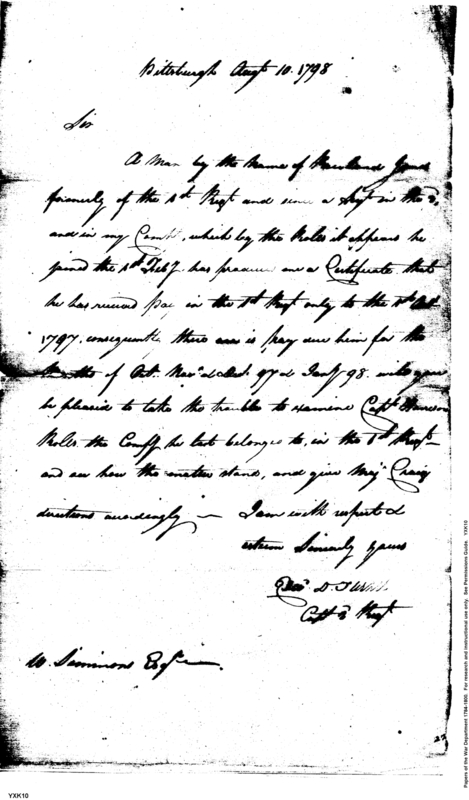 Pittsburgh Augt 10. 1798
Sir
A Man by the Name of Rowland Jones
formerly of the 1st Regt and since a Sergt in the 3d
and in my Compy, which by the Roles it appears he
joined the 1st Feby. has procured me a Certificate that
he has received pay in the 1st Regt only to the 1st Oct
1797, consequently there is pay due him for the
Months of Oct. Novr & Decr 97 & Jany 98. will you
be pleased to take the trouble to examine Capt
Roles the Compy he last belonged to, in the 1st Regt
and see how the matter stand, and give Majr Craig
directions accordingly — I am with respect &
esteem Sincerely yours
D.
Capt 3 Regt
W. Simmons Esqr
22
YXK10
Papers of the War Department 1784-1800. For research and instructional use only. See Permissions Guide. YXK10